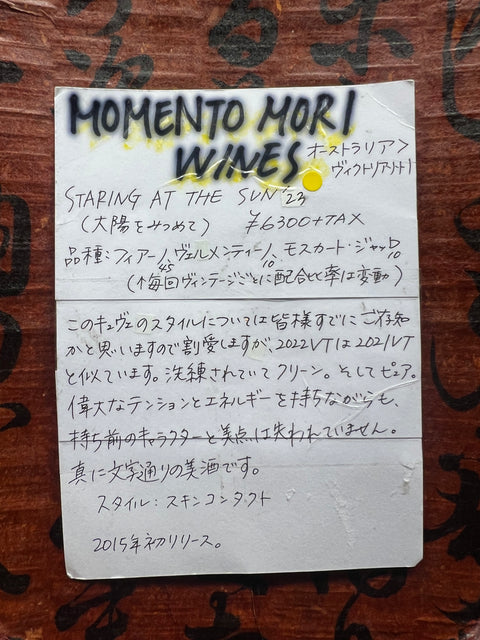 MOMENTO MORI
WINES
オーストラリア>
ヴィクトリア州
STARING AT THE SUN '23
(大陽をみつめて) ¥6300+TAX
品種:フィアーノ、ヴェルメンティーノ、モスカート・ジャッロ
45 10 10
(↑毎回ヴィンテージごとに配合比率は変動)
このキュヴェのスタイルについては皆様すでにご存知
かと思いますので割愛しますが、2022VTは2021VT
と似ています。洗練されていてクリーン。そしてピュア。
偉大なテンションとエネルギーを持ちながらも、
持ち前のキャラクターと美点は失われていません。
真に文字通りの美酒です。
スタイル:スキンコンタクト
2015年初リリース。